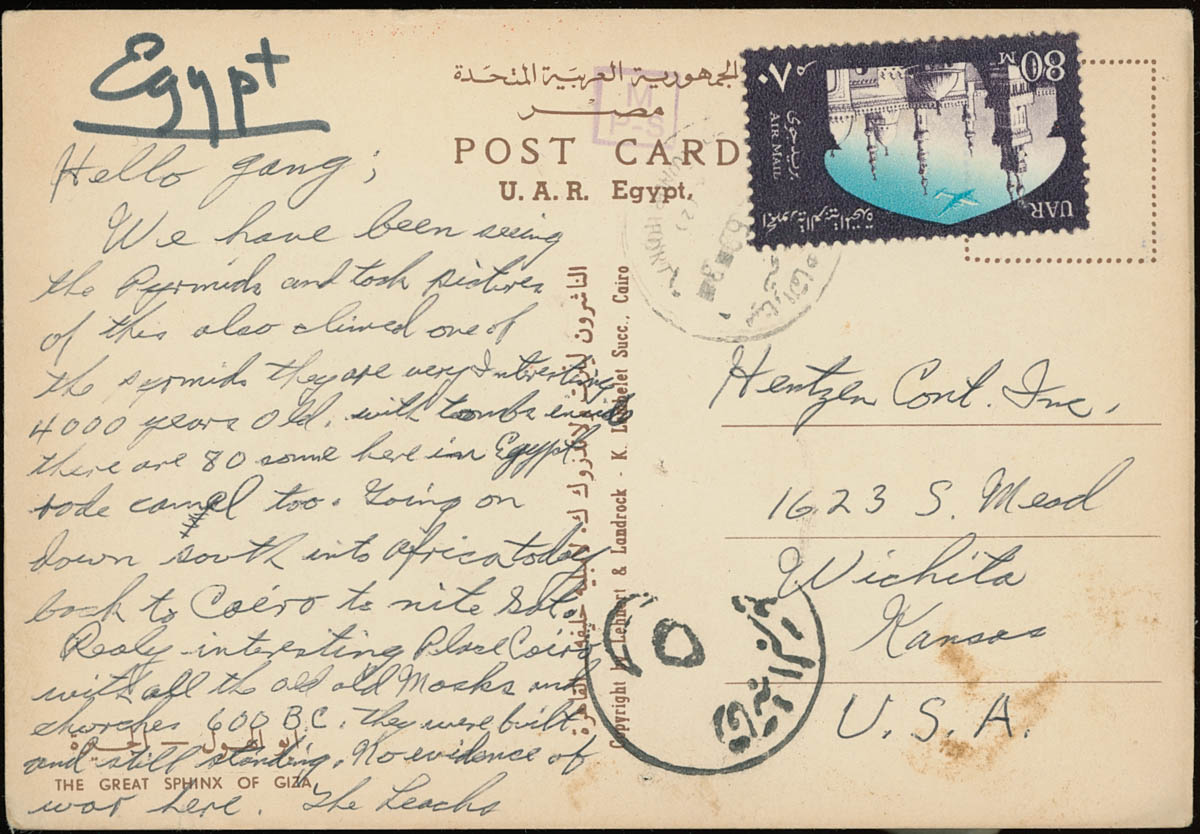 Egypt
Hello gang;
We have been seeing
the Pyrmids and took pictures
of this also climed one of
the pyrmids they are very Interesting
4000 years old. with tombs
there are 80 some here in Egypt
rode camel too. Going on
down south into Africa today
back to Cairo to nite Sat.
Realy interesting Place Cairo
with all the old old Mosks and
churches 600 B.C. they were built
and still standing. No evidence of
war here. The Leachs
أبو الهول — الجيزة
THE GREAT SPHINX OF GIZA
الجمهورية العربية المتحدة
مصر
POST CARD
U. A. R. Egypt.
M
P-S
الناشرون لاهنرت لاندروك ك. لامبليه خليفة القاهرة
Copyright by Lehnert & Landrock - K. Lambelet Succ., Cairo
80 M
٨٠ م
بريد جوي
AIR MAIL
UAR
الجمهورية العربية المتحدة
Hentzen Cont. Inc.
1623 S. Mead
Wichita
Kansas
U.S.A.
٥